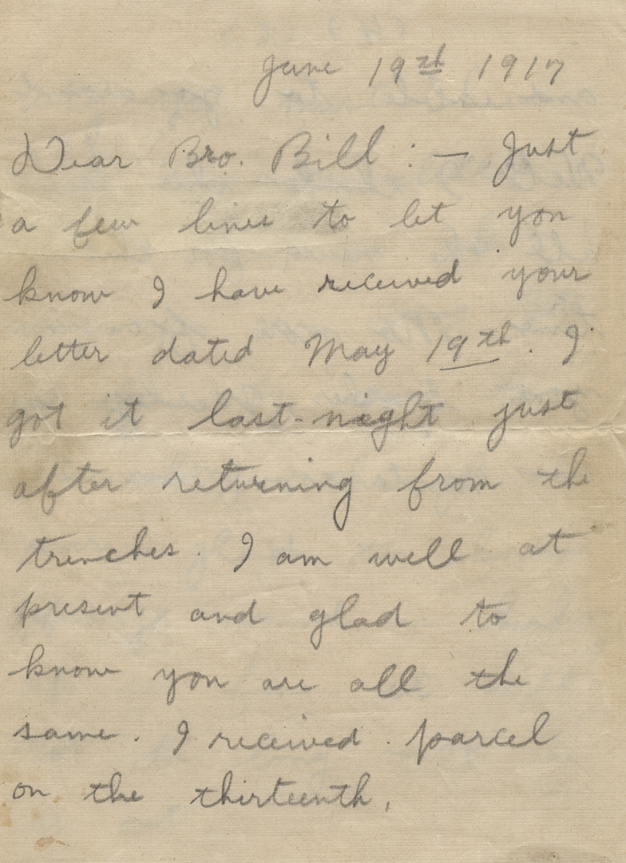 June 19th 1917
Dear Bro. Bill : — Just
a few lines to let you
know I have received your
letter dated May 19th. I
got it last-night just
after returning from the
trenches. I am well at
present and glad to
know you are all the
same. I received parcel
on the thirteenth,